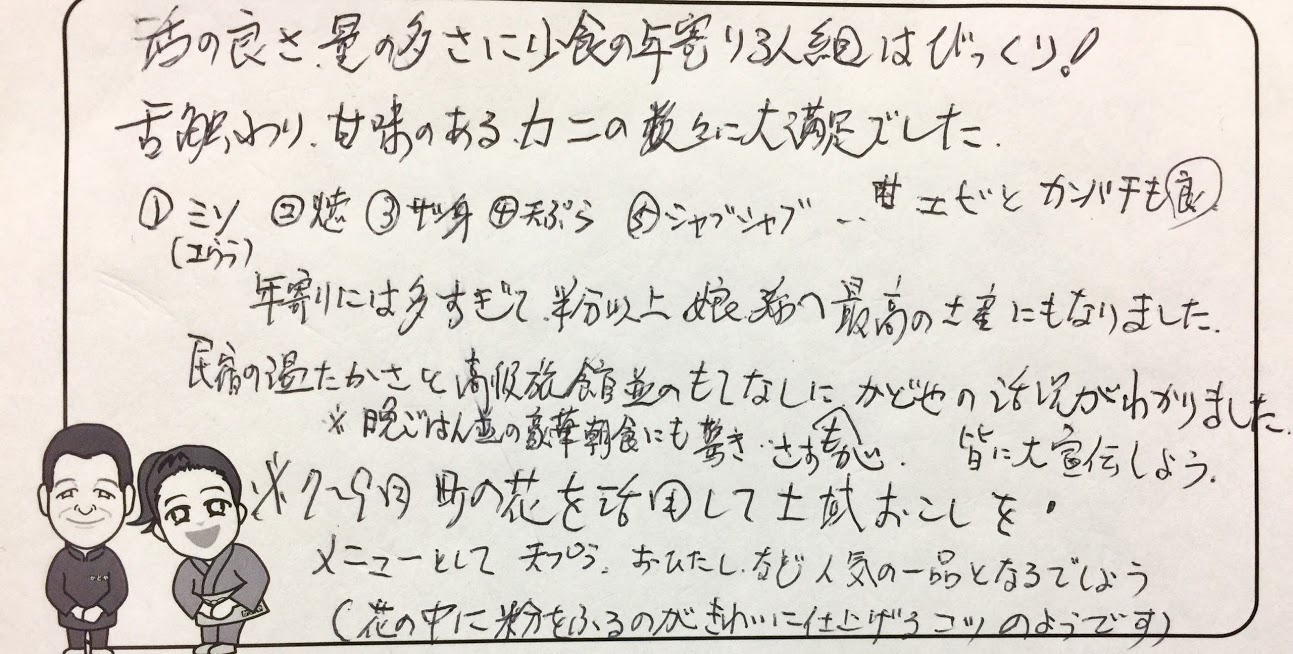 活の良さ、量の多さに少食の年寄り3人組はびっくり!
舌触わり、甘味のある、カニの数々に大満足でした。
① ミソ ② 焼 ③ ザシ身 ④ 天ぷら ⑤ シャブシャブ … 甘エビと カンパチも良
(コウラ)
年寄りには多すぎて、半分以上 娘、孫へ 最高の土産にもなりました。
民宿の温たかさと高級旅館並のもてなしに、かどやの活況がわかりました。
※ 晩ごはん並の豪華朝食にも驚き さすが 皆に大宣伝しよう。
※ 7〜9月 町の花を活用して土域おこしを・
メニューとして 天ぷら、おひたし、など 人気の一品となるでしょう
(花の中に粉をふるのがきれいに仕上げるコツのようです)
かどや